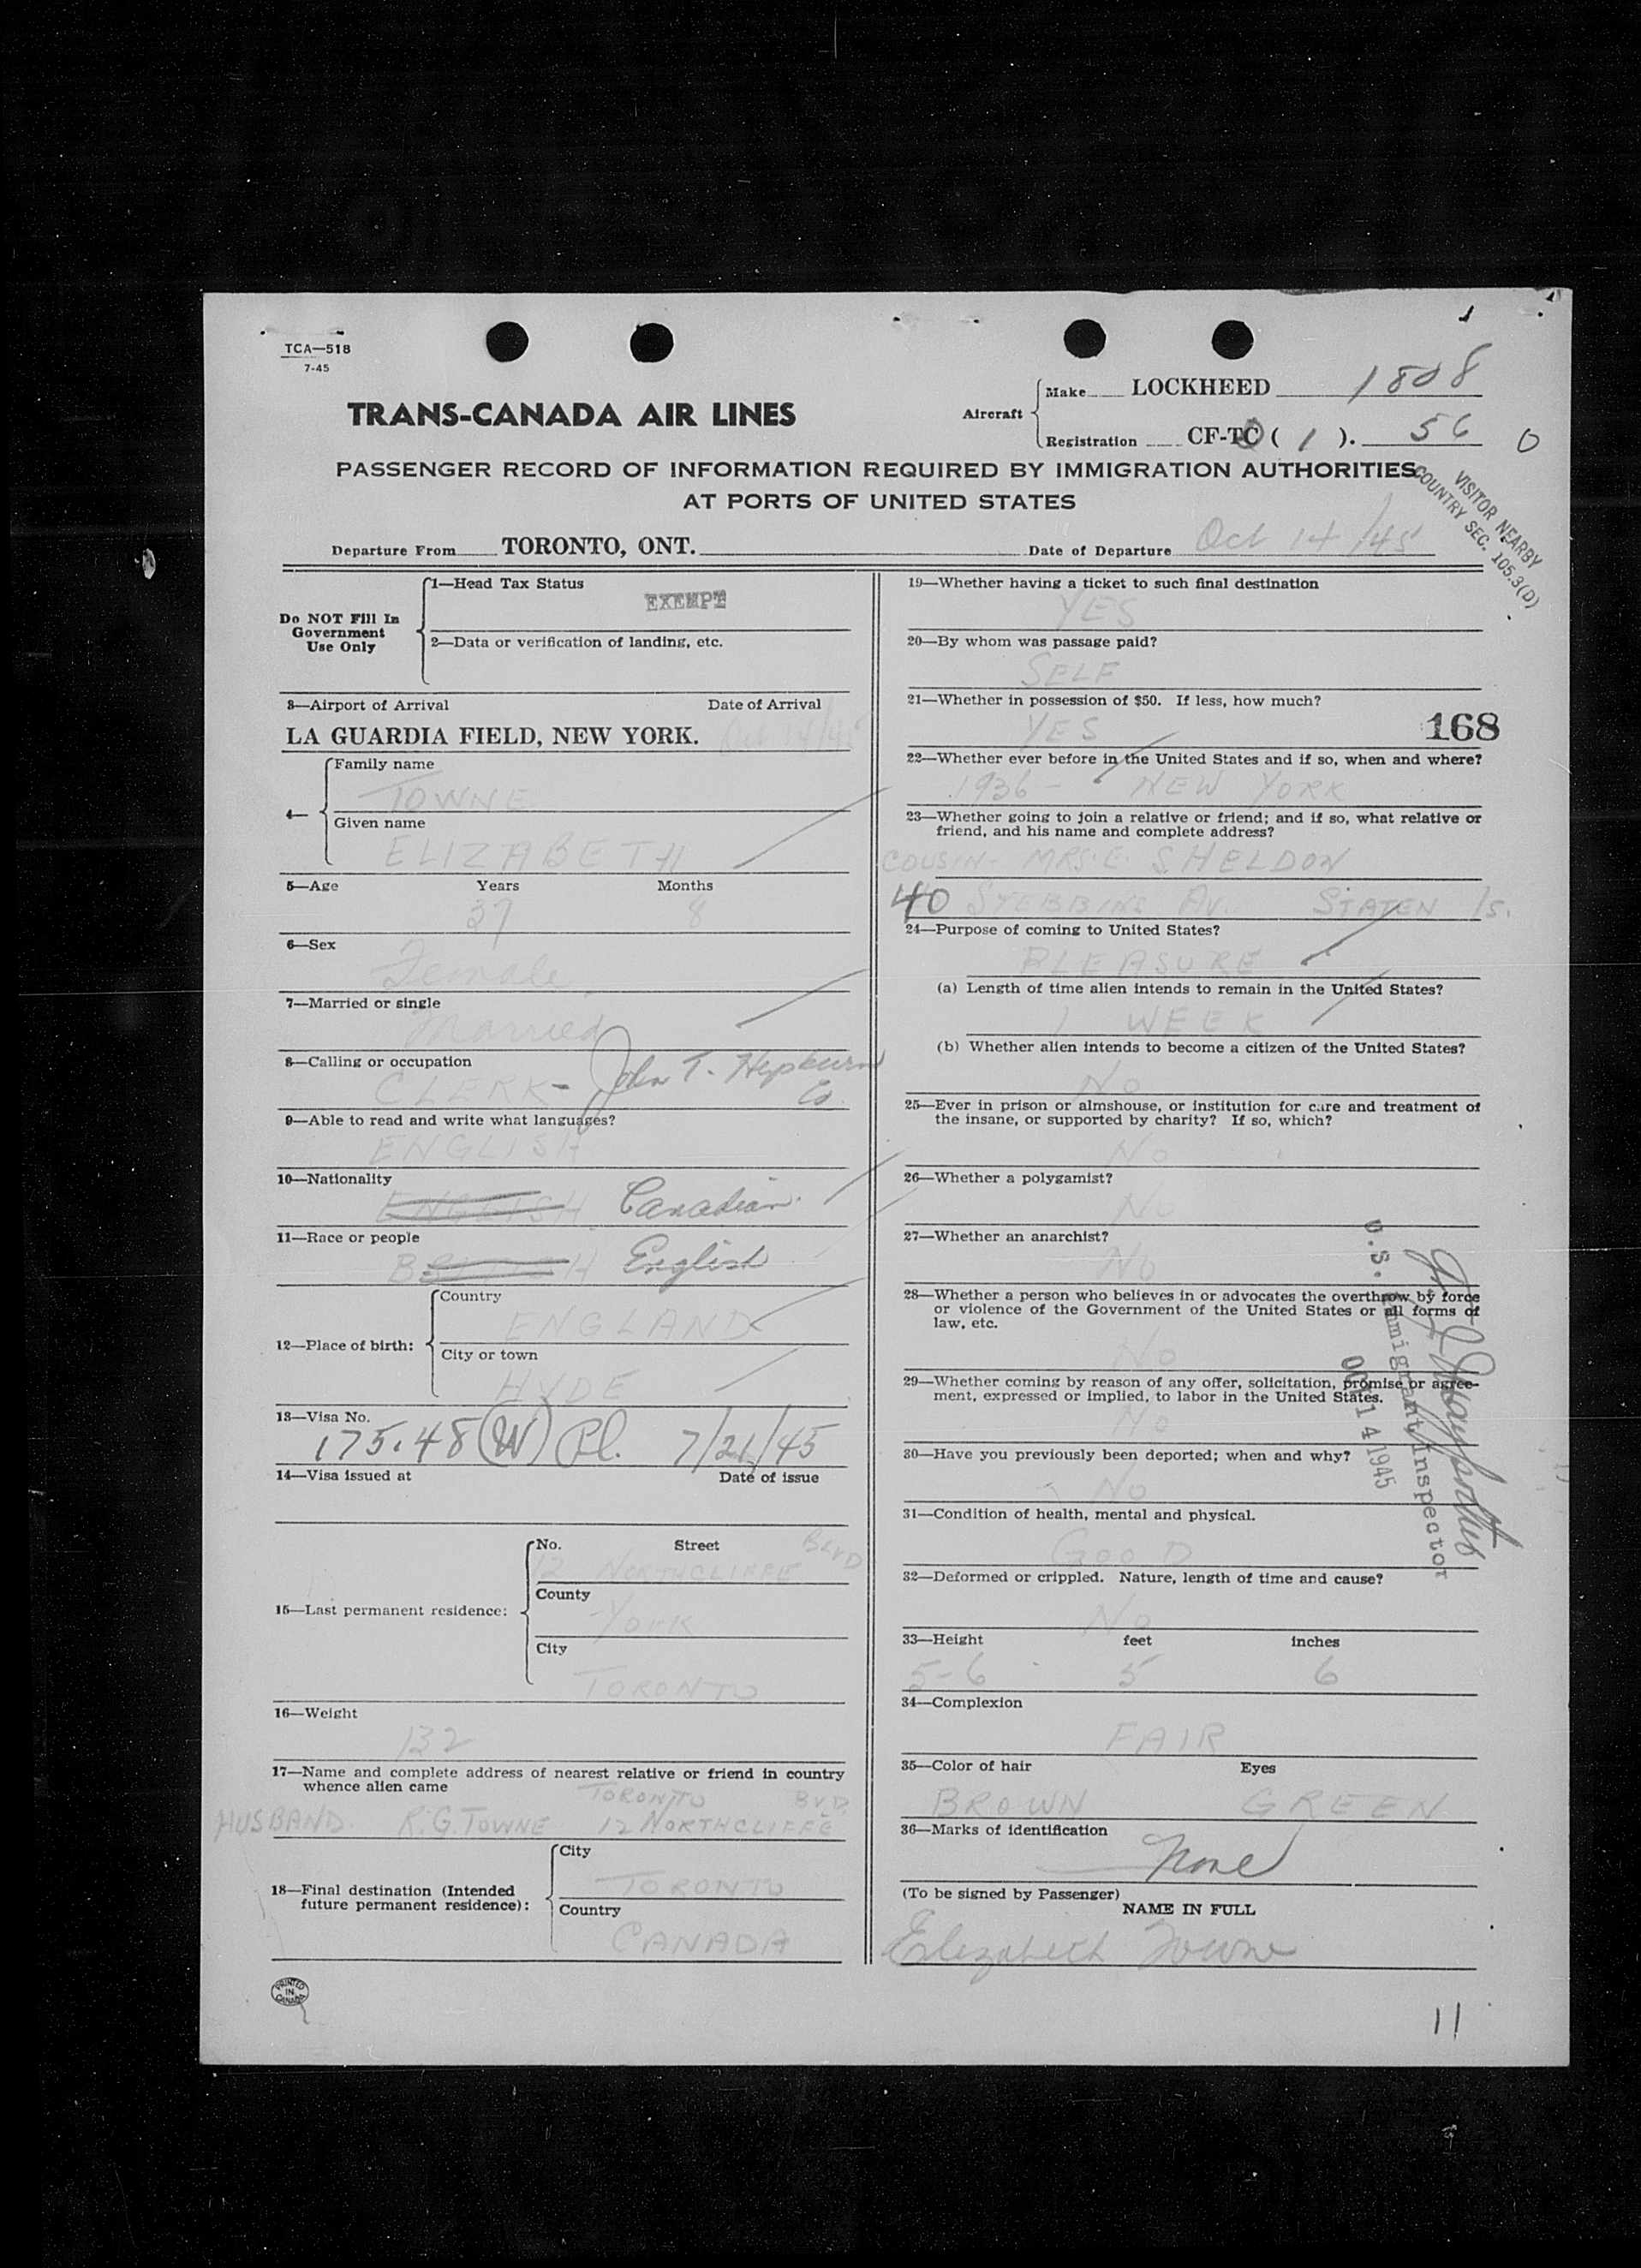 TCA—518
7-45
TRANS-CANADA AIR LINES
Aircraft
Make LOCKHEED 1808
Registration CF-TC ( 1 ). 56 0
PASSENGER RECORD OF INFORMATION REQUIRED BY IMMIGRATION AUTHORITIES
AT PORTS OF UNITED STATES
VISITOR NEARBY
COUNTRY SEC. 105.3(D)
Departure From TORONTO, ONT. Date of Departure Oct 14/45
Do NOT Fill In
Government
Use Only
1—Head Tax Status
EXEMPT
2—Data or verification of landing, etc.
3—Airport of Arrival Date of Arrival
LA GUARDIA FIELD, NEW YORK. Oct 14/45
4—
Family name
TOWNE
Given name
ELIZABETH
5—Age Years Months
37 8
6—Sex
Female
7—Married or single
Married
8—Calling or occupation
CLERK - John T. Hepburn
Co.
9—Able to read and write what languages?
ENGLISH
10—Nationality
ENGLISH Canadian
11—Race or people
English
12—Place of birth:
Country
ENGLAND
City or town
HYDE
13—Visa No.
175.48 (W) Pl. 7/21/45
14—Visa issued at Date of issue
15—Last permanent residence:
No. Street BLVD
12 NORTHCLIFFE
County
York
City
TORONTO
16—Weight
132
17—Name and complete address of nearest relative or friend in country
whence alien came
TORONTO BVD.
HUSBAND. R.G. TOWNE 12 NORTHCLIFFE
18—Final destination (Intended
future permanent residence):
City
TORONTO
Country
CANADA
PRINTED
IN
CANADA
19—Whether having a ticket to such final destination
YES
20—By whom was passage paid?
SELF
21—Whether in possession of $50. If less, how much?
YES
168
22—Whether ever before in the United States and if so, when and where?
1936 - NEW YORK
23—Whether going to join a relative or friend; and if so, what relative or
friend, and his name and complete address?
COUSIN - MRS. E. SHELDON
40 STEBBINS AV. STATEN Is.
24—Purpose of coming to United States?
PLEASURE
(a) Length of time alien intends to remain in the United States?
1 WEEK
(b) Whether alien intends to become a citizen of the United States?
No
25—Ever in prison or almshouse, or institution for care and treatment of
the insane, or supported by charity? If so, which?
No
26—Whether a polygamist?
No
27—Whether an anarchist?
No
28—Whether a person who believes in or advocates the overthrow by force
or violence of the Government of the United States or all forms of
law, etc.
No
29—Whether coming by reason of any offer, solicitation, promise or agree-
ment, expressed or implied, to labor in the United States.
No
30—Have you previously been deported; when and why?
No
U.S. Immigrant Inspector
OCT 14 1945
31—Condition of health, mental and physical.
GOOD
32—Deformed or crippled. Nature, length of time and cause?
No
33—Height feet inches
5-6 5 6
34—Complexion
FAIR
35—Color of hair Eyes
BROWN GREEN
36—Marks of identification
None
(To be signed by Passenger)
NAME IN FULL
Elizabeth Towne
11